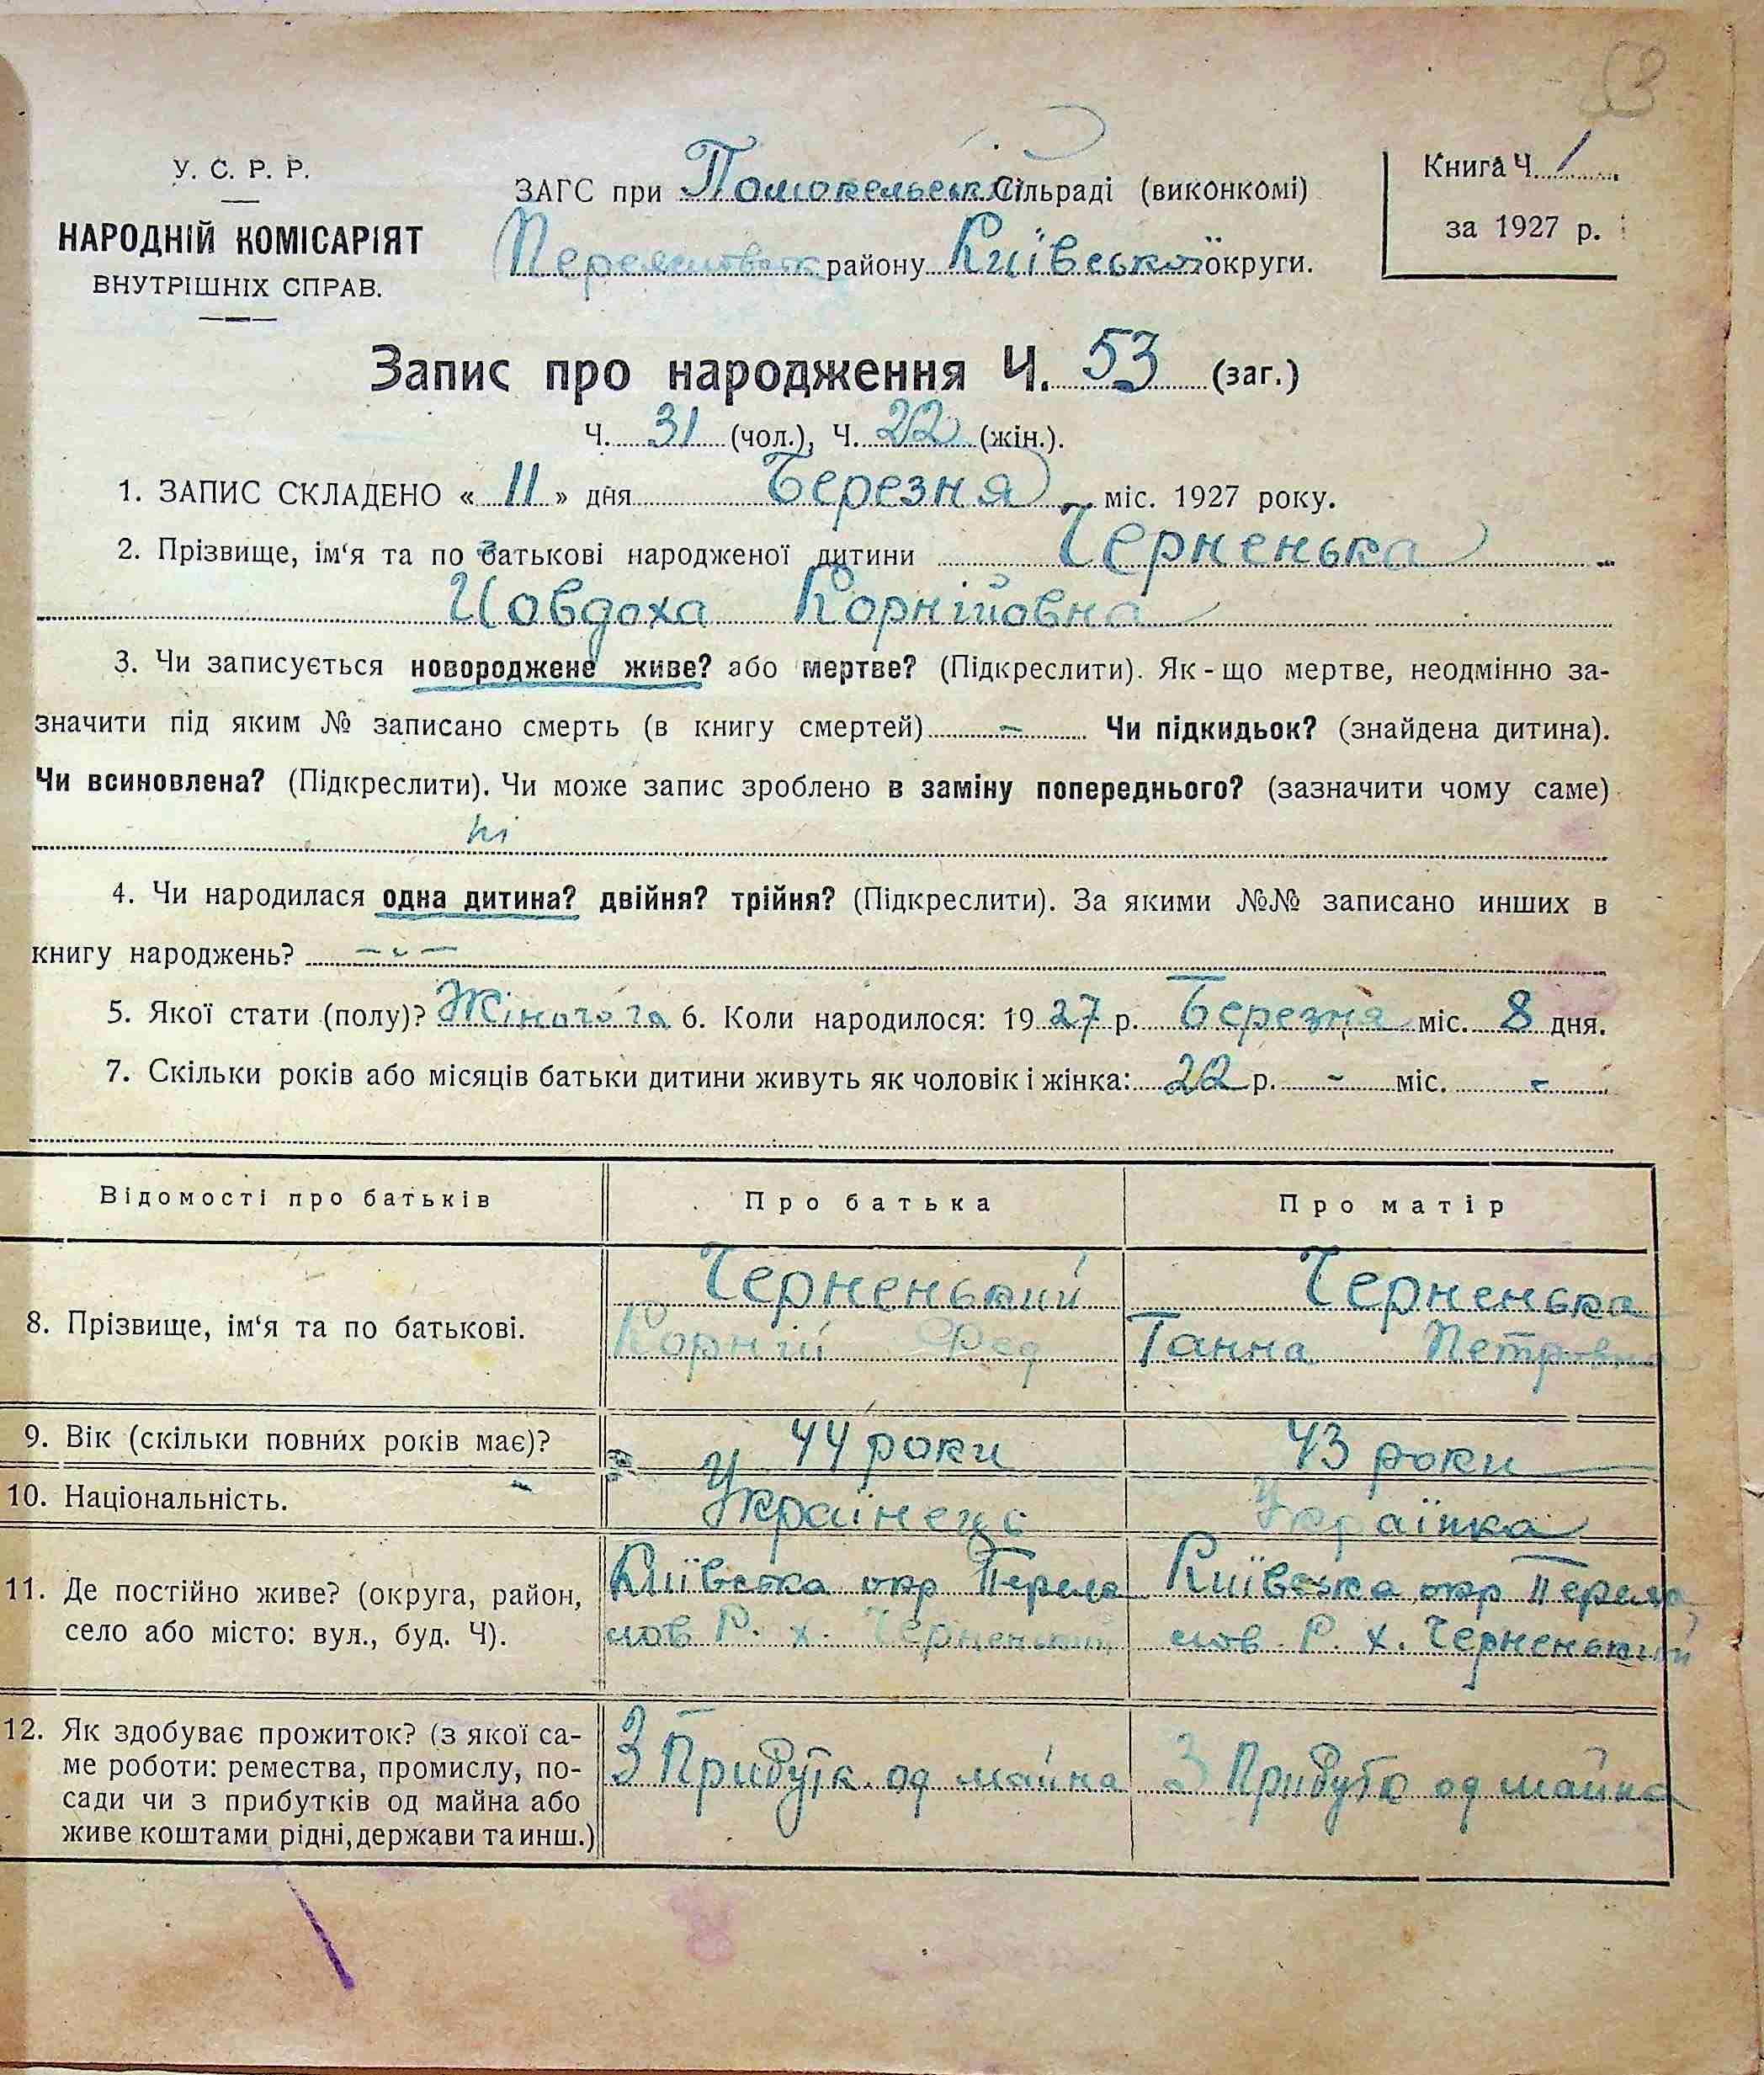 53
У. С. Р. Р.
НАРОДНІЙ КОМІСАРІЯТ
ВНУТРІШНІХ СПРАВ.
ЗАГС при Помокельській Сільраді (виконкомі)
району Київської округи.
Книга Ч. 1
за 1927 р.
Запис про народження Ч. 53 (заг.)
Ч. 31 (чол.), Ч. 22 (жін.).
1. ЗАПИС СКЛАДЕНО « 11 » дня Березня міс. 1927 року.
2. Прізвище, ім‘я та по батькові народженої дитини Черненька
Йовдоха Корнійовна
3. Чи записується новороджене живе? або мертве? (Підкреслити). Як - що мертве, неодмінно за-
значити під яким № записано смерть (в книгу смертей) - Чи підкидьок? (знайдена дитина).
Чи всиновлена? (Підкреслити). Чи може запис зроблено в заміну попереднього? (зазначити чому саме)
ні
4. Чи народилася одна дитина? двійня? трійня? (Підкреслити). За якими №№ записано инших в
книгу народжень? - - -
5. Якої стати (полу)? Жіночога 6. Коли народилося: 1927 р. Березня міс. 8 дня.
7. Скільки років або місяців батьки дитини живуть як чоловік і жінка: 22 р. - міс. -
Відомості про батьків Про батька Про матір
8. Прізвище, ім‘я та по батькові. Черненький Черненька
Корній Фед Ганна Петровна
9. Вік (скільки повних років має)? 44 роки 43 роки
10. Національність. Українець Українка
11. Де постійно живе? (округа, район, Київска окр Перея Київська окр Перея
село або місто: вул., буд. Ч). слов Р. х. Черненький слов Р. х. Черненький
12. Як здобуває прожиток? (з якої са-
ме роботи: ремества, промислу, по- З Прибутк од майна З Прибутк од майна
сади чи з прибутків од майна або
живе коштами рідні, держави та инш.)